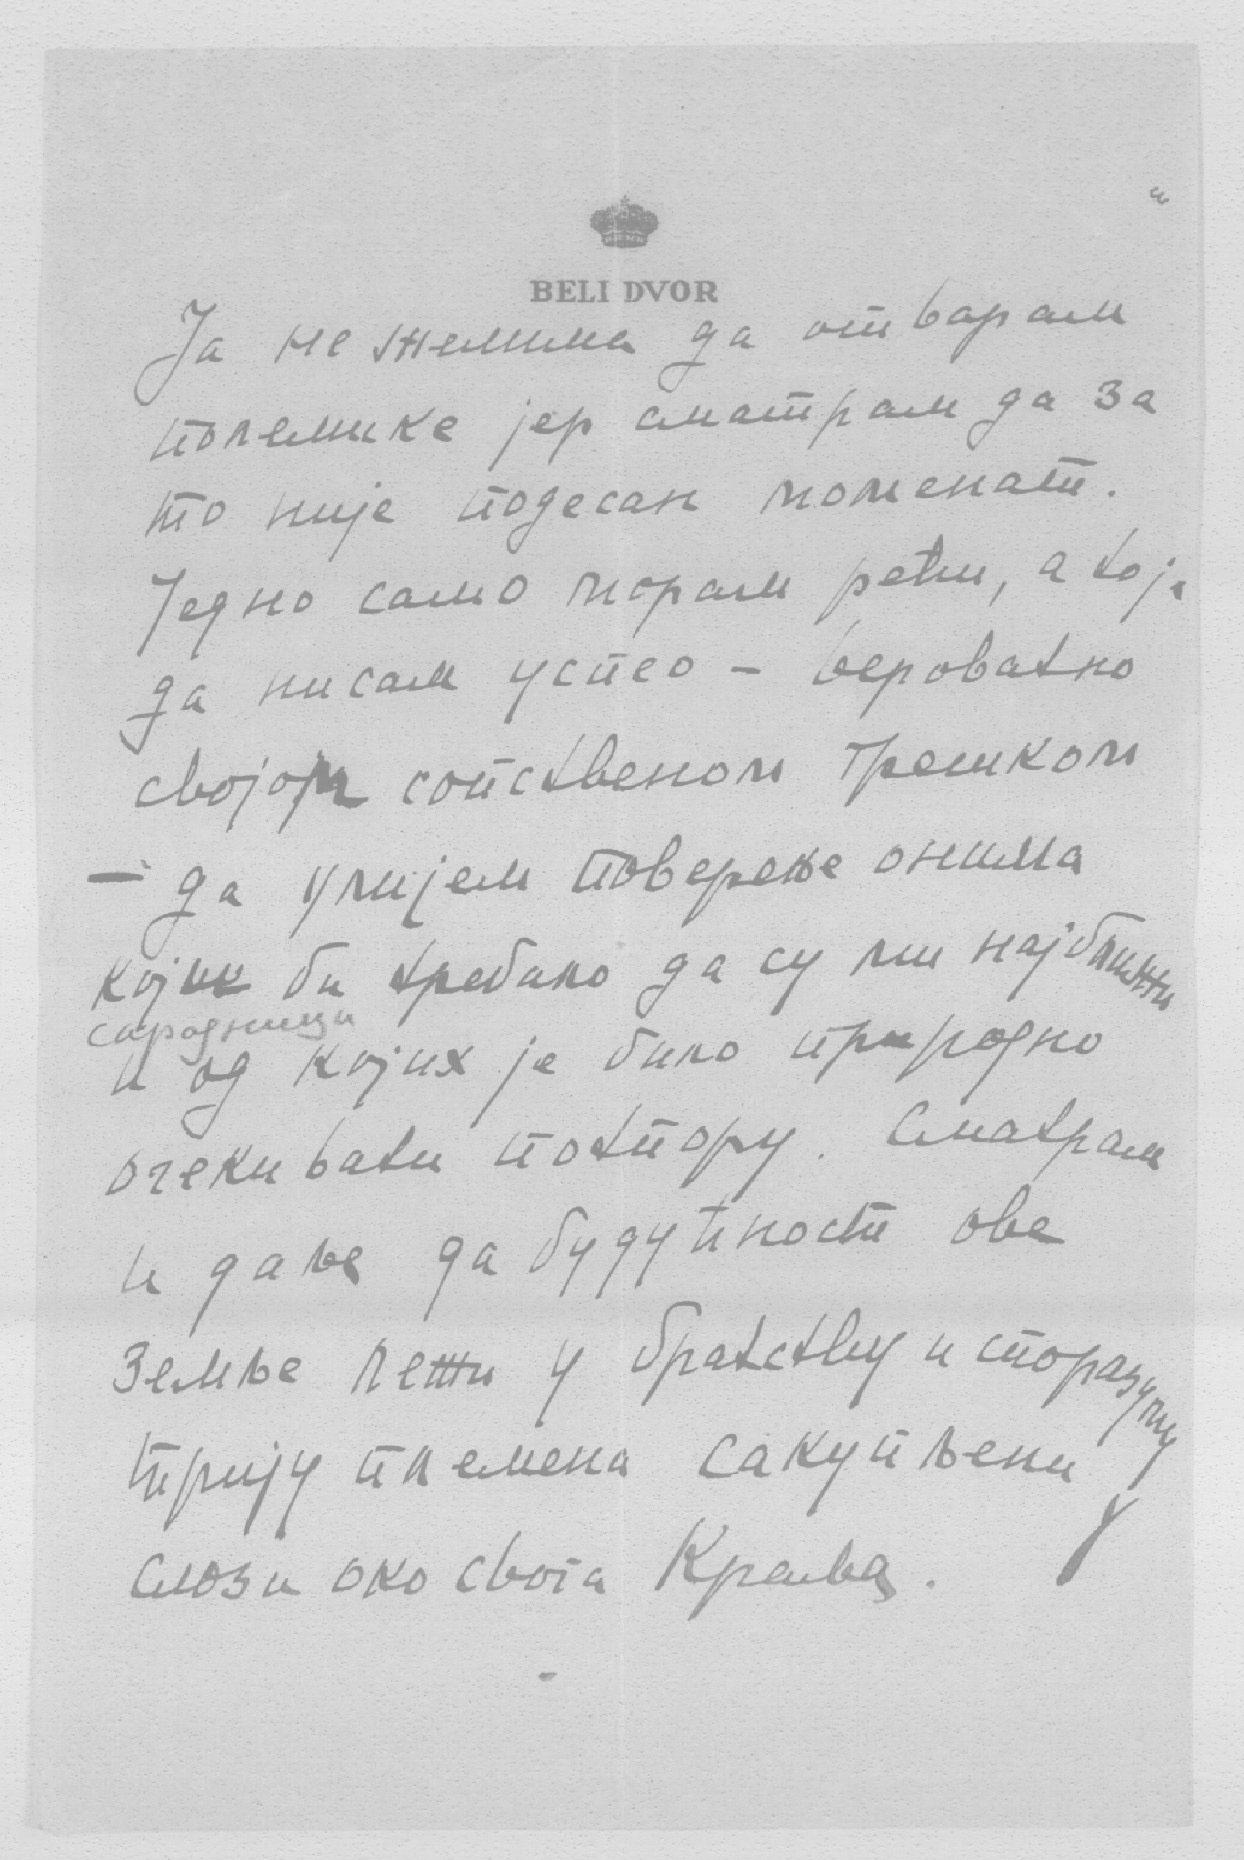 BELI DVOR
Ја не желима да отварам
полемике јер сматрам да за
то није подесан моменат.
Једно само морам рећи, а то је
да нисам успео – вероватно
својом сопственом грешком
– да улијем поверење онима
којих би требало да су ми најближи
сарадници
и од којих је било природно
очекивати потпору. Сматрам
и даље да будућност ове
земље лежи у братству и споразуму
трију племена сакупљени у
слози око свога Краља.